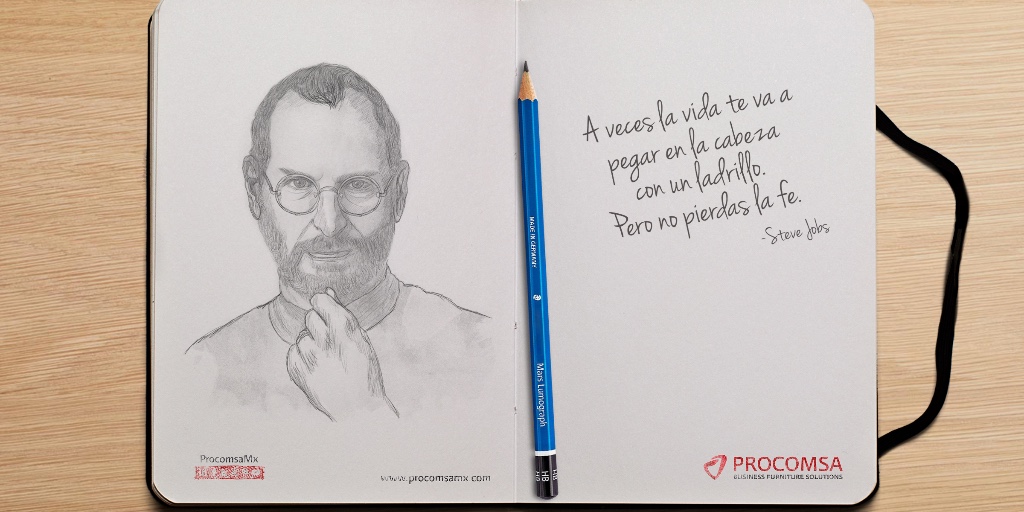 ProcomsaMx
www.procomsamx.com
MADE IN GERMANY
Mars Lumograph
HB
HB
A veces la vida te va a
pegar en la cabeza
con un ladrillo.
Pero no pierdas la fe.
-Steve Jobs
PROCOMSA
BUSINESS FURNITURE SOLUTIONS